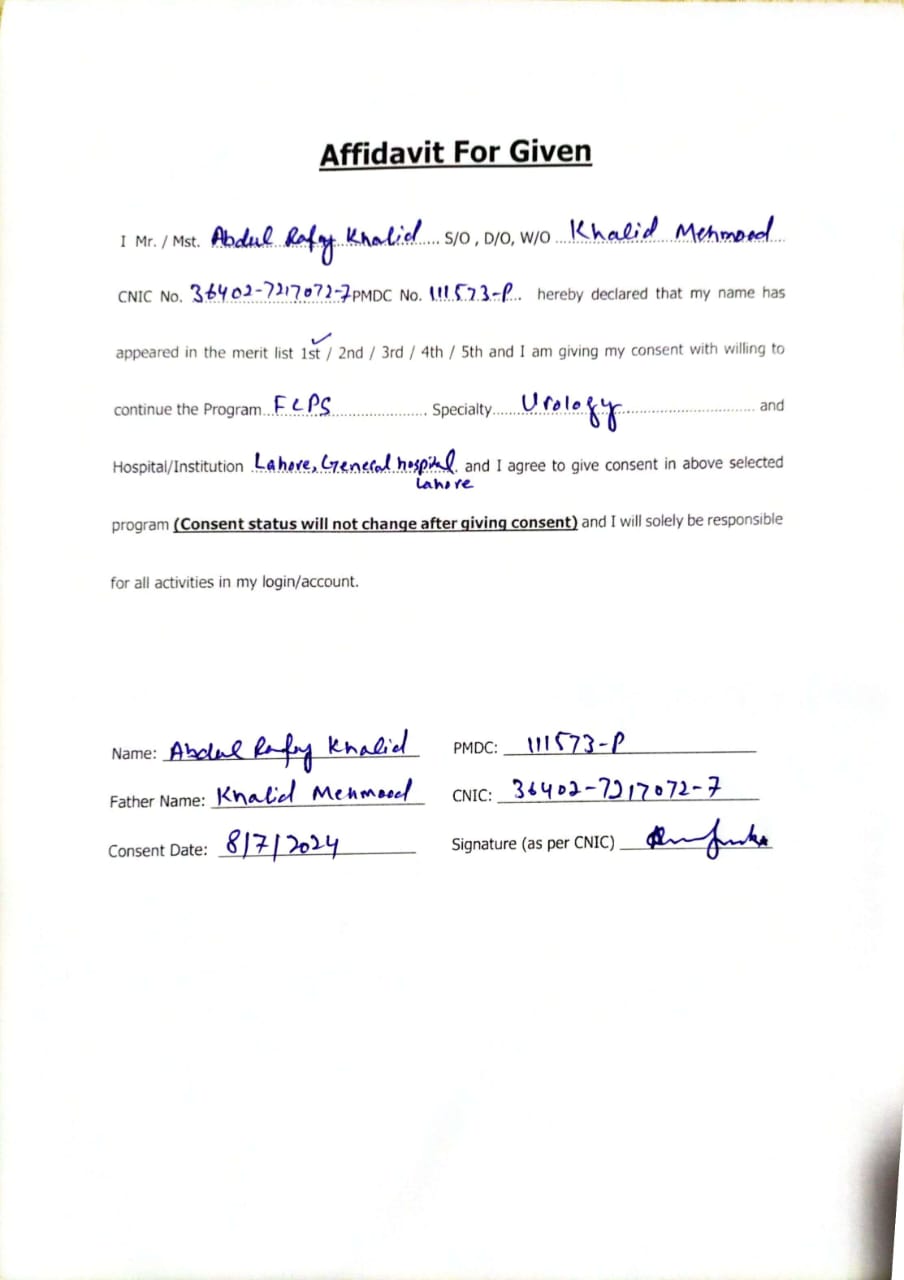 Affidavit For Given
I Mr. / Mst. Abdul Rafay Khalid.... S/O , D/O, W/O ...Khalid Mehmood...
CNIC No. 36402-7217072-7 PMDC No. 111573-P... hereby declared that my name has
appeared in the merit list 1st ✓ / 2nd / 3rd / 4th / 5th and I am giving my consent with willing to
continue the Program...FCPS........................ Specialty......Urology................................ and
Hospital/Institution Lahore, General hospital. and I agree to give consent in above selected
Lahore
program (Consent status will not change after giving consent) and I will solely be responsible
for all activities in my login/account.
Name: Abdul Rafay Khalid PMDC: 111573-P
Father Name: Khalid Mehmood CNIC: 36402-7217072-7
Consent Date: 8/7/2024 Signature (as per CNIC)